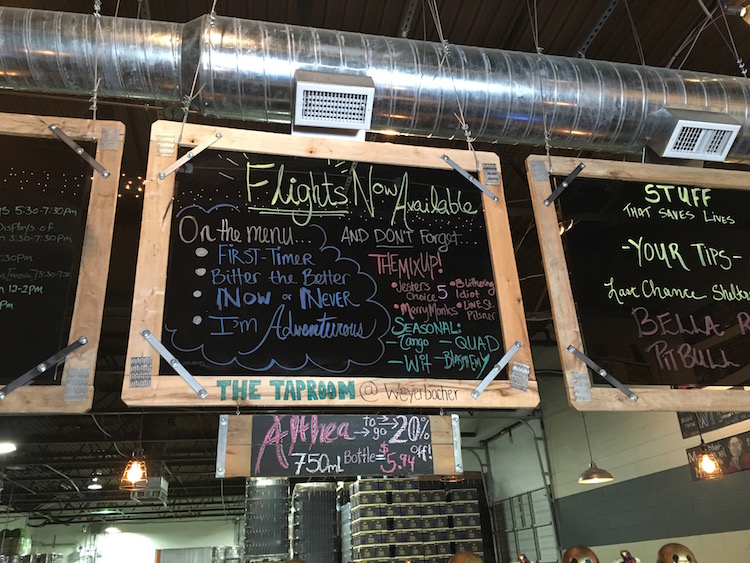 5:30-7:30pm
Displays of
3:30-7:30pm
7:30pm
12-2pm
Flights Now Available
On the menu...
First-Timer
Bitter the Better
Now or Never
I'm Adventurous
AND DON'T Forget...
THE MIXUP!
• Jesters choice 5
• Merry Monks
• Blithering Idiot
• Line St. Pilsner
SEASONAL:
- Tango - QUAD
- Wit - BlasPHEMY
THE TAPROOM @ Weyerbacher
Althea to → go → 20% off!
750mL Bottle = $5.94
STUFF
THAT SAVES LIVES
- YOUR TIPS -
Last Chance Shelter
BELLA
PitBULL